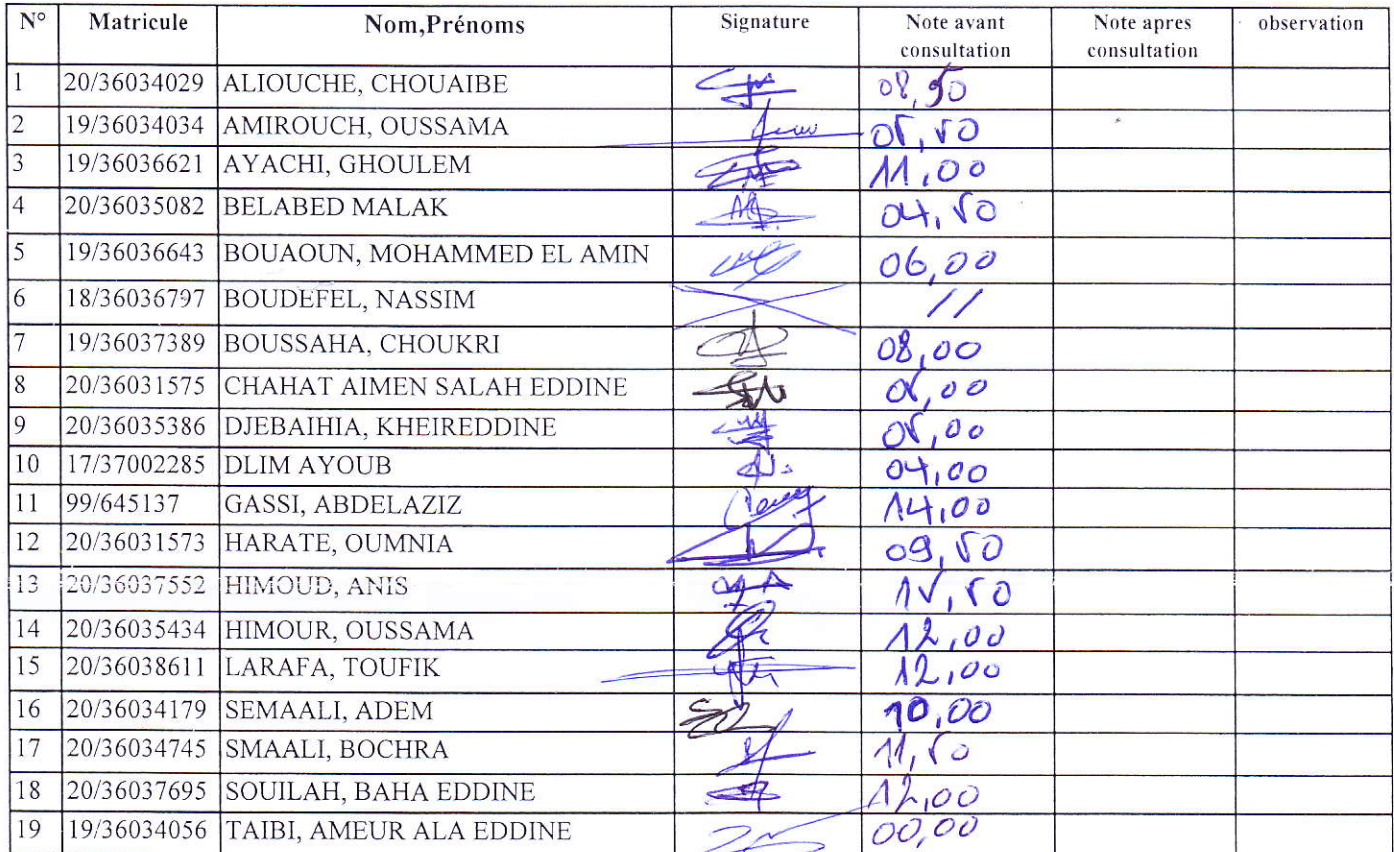 N° Matricule Nom,Prénoms Signature Note avant consultation Note apres consultation observation
1 20/36034029 ALIOUCHE, CHOUAIBE 08,50
2 19/36034034 AMIROUCH, OUSSAMA 05,50
3 19/36036621 AYACHI, GHOULEM 11,00
4 20/36035082 BELABED MALAK 04,50
5 19/36036643 BOUAOUN, MOHAMMED EL AMIN 06,00
6 18/36036797 BOUDEFEL, NASSIM //
7 19/36037389 BOUSSAHA, CHOUKRI 08,00
8 20/36031575 CHAHAT AIMEN SALAH EDDINE 05,00
9 20/36035386 DJEBAIHIA, KHEIREDDINE 05,00
10 17/37002285 DLIM AYOUB 04,00
11 99/645137 GASSI, ABDELAZIZ 14,00
12 20/36031573 HARATE, OUMNIA 09,50
13 20/36037552 HIMOUD, ANIS 15,50
14 20/36035434 HIMOUR, OUSSAMA 12,00
15 20/36038611 LARAFA, TOUFIK 12,00
16 20/36034179 SEMAALI, ADEM 10,00
17 20/36034745 SMAALI, BOCHRA 11,50
18 20/36037695 SOUILAH, BAHA EDDINE 12,00
19 19/36034056 TAIBI, AMEUR ALA EDDINE 00,00